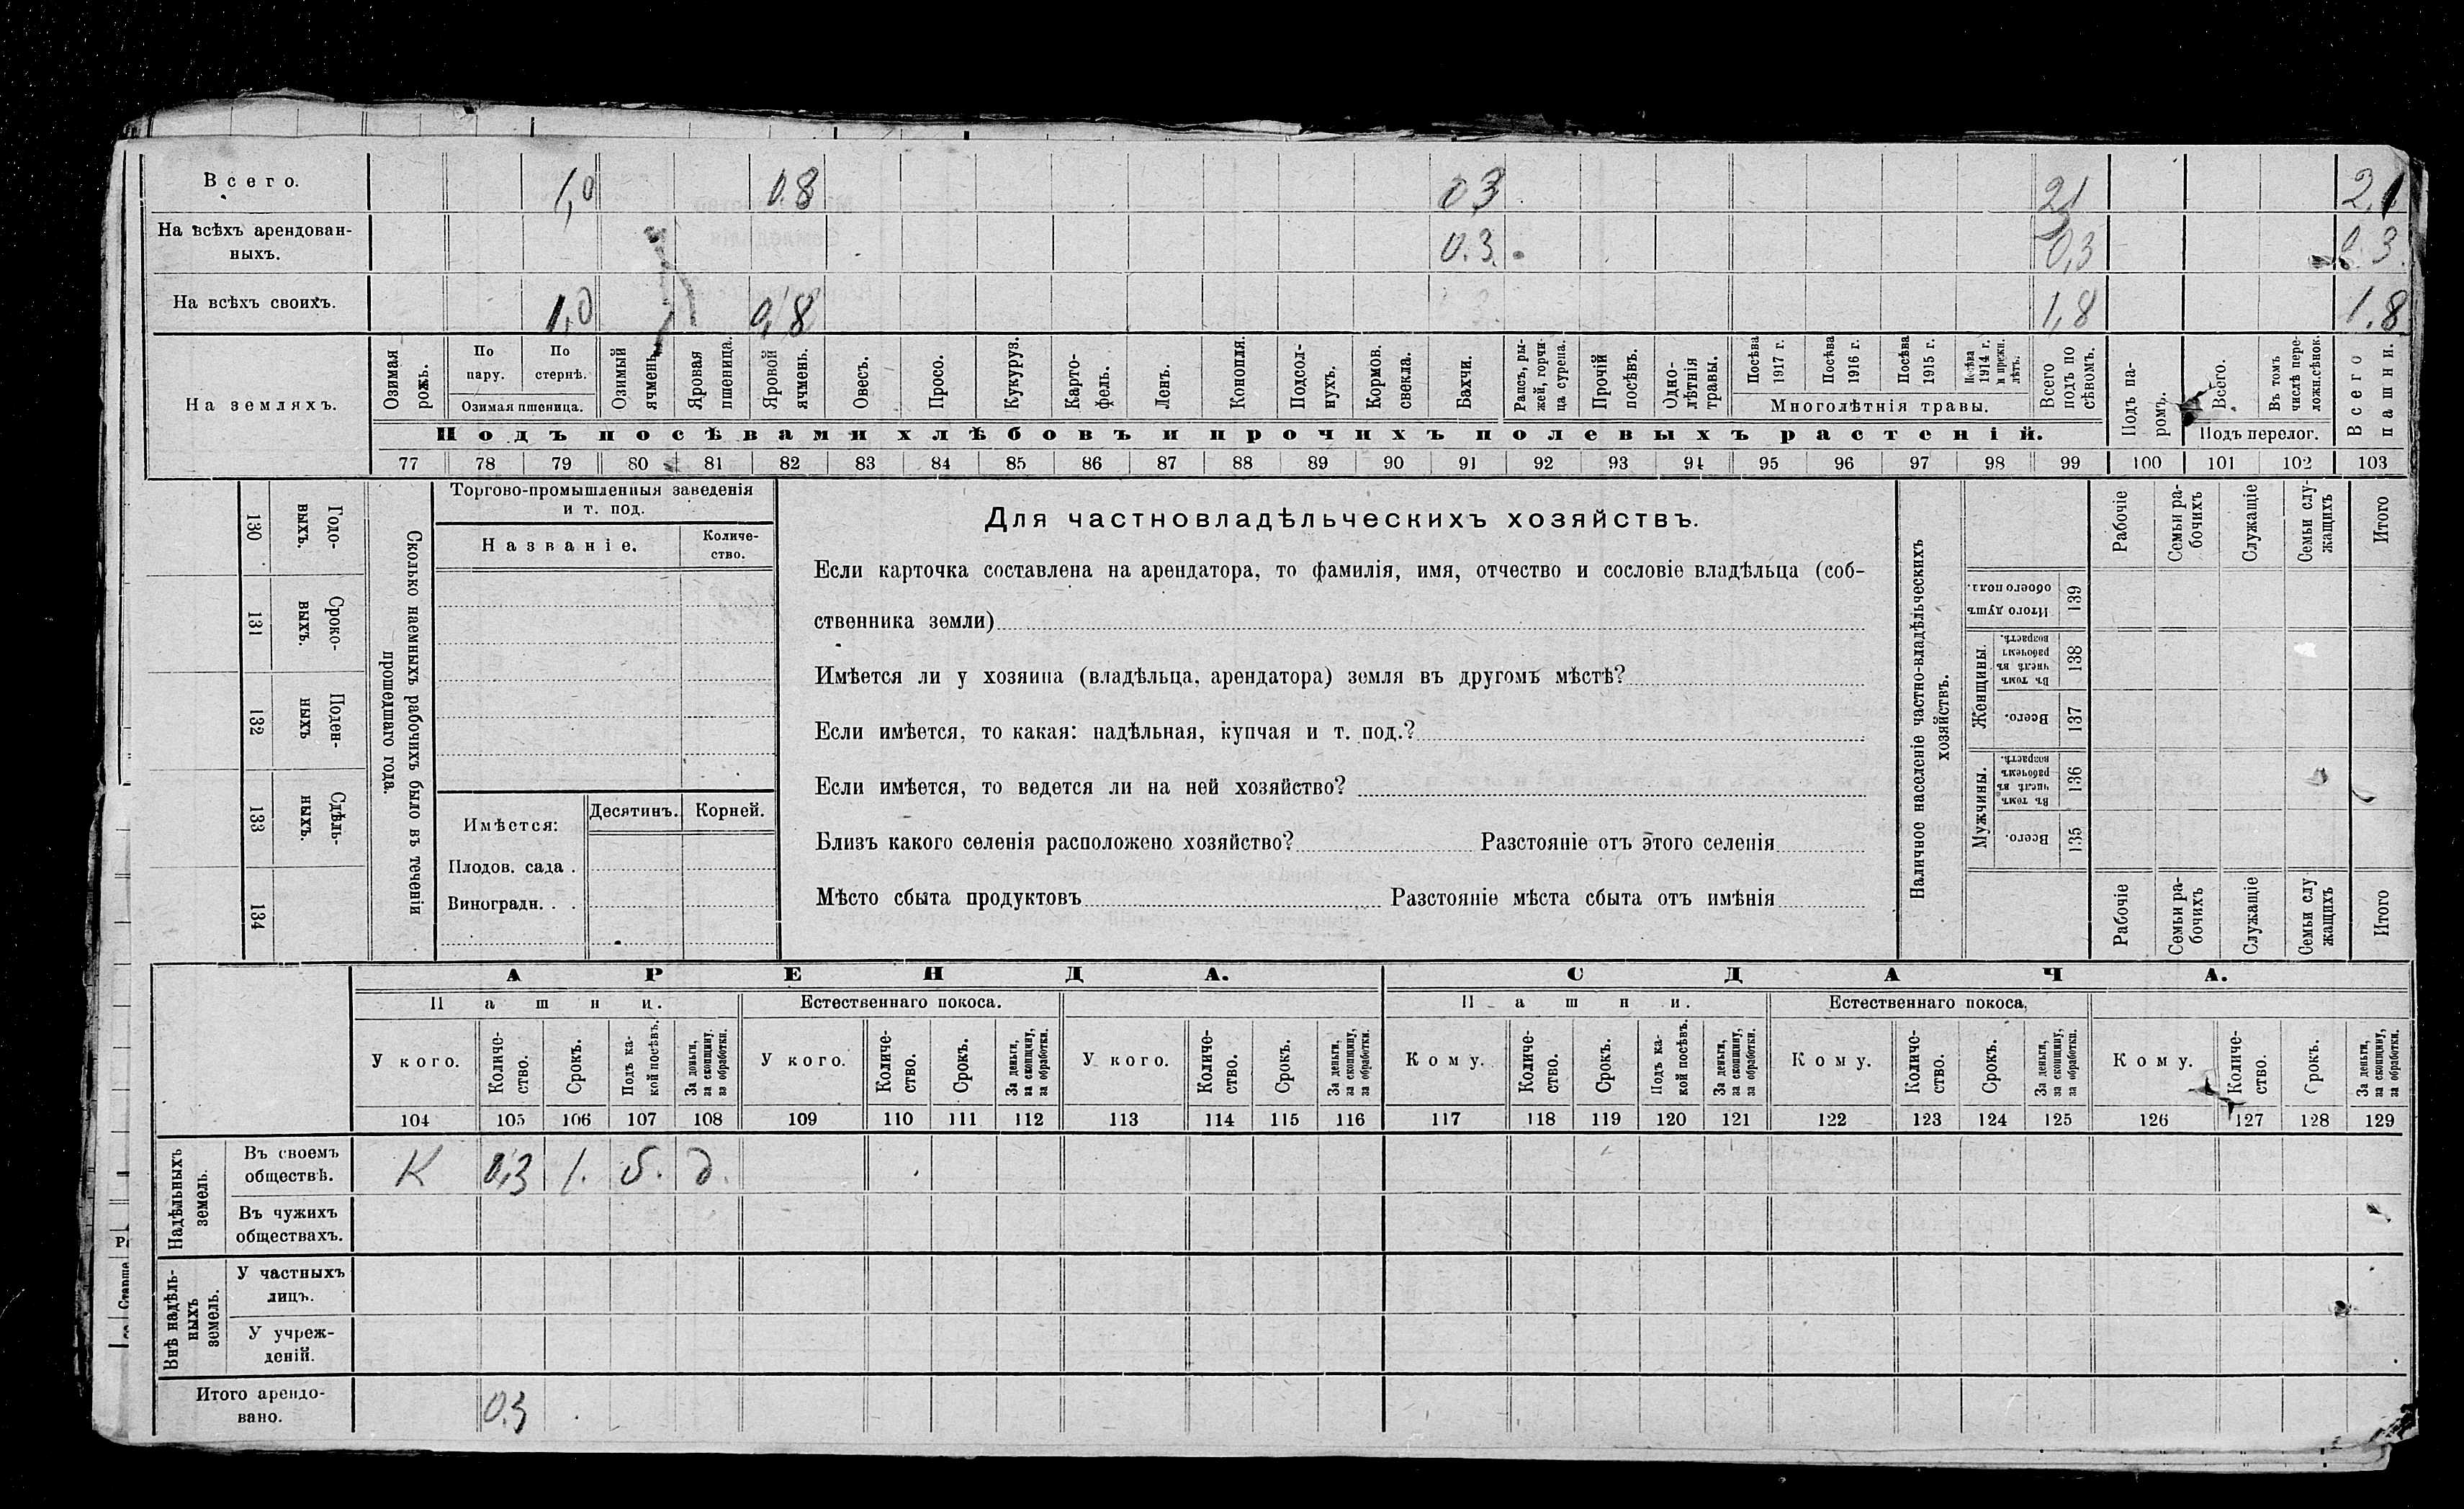 Всего. 1,0 0.8 0,3 2,1 2.1
На всѣхъ арендован-
ныхъ. 0.3. 0,3 0.3.
На всѣхъ своихъ. 1,0 0,8 1,8 1.8
На земляхъ.
Озимая рожь.
По пару.
По стернѣ.
Озимая пшеница.
Озимый ячмень.
Яровая пшеница.
Яровой ячмень.
Овесъ.
Просо.
Кукуруз.
Карто-
фель.
Ленъ.
Конопля.
Подсол-
нухъ.
Кормов.
свекла.
Бахчи.
Рапсъ, ры-
жей, горчи-
ца сурепа.
Прочій
посѣвъ.
Одно-
лѣтнія
травы.
Посѣва
1917 г.
Посѣва
1916 г.
Посѣва
1915 г.
Посѣва
1914 г.
и прежн.
лѣтъ.
Многолѣтнія травы.
Всего
подъ по
сѣвомъ.
Подъ па-
ромъ.
Всего.
Въ томъ
числѣ пере-
ложн.сѣнок.
Подъ перелог.
Всего
пашни.
Подъ посѣвами хлѣбовъ и прочихъ полевыхъ растеній.
77 78 79 80 81 82 83 84 85 86 87 88 89 90 91 92 93 94 95 96 97 98 99 100 101 102 103
130 Годо-
выхъ.
131 Сроко-
выхъ.
132 Поден-
ныхъ
133 Сдѣль-
ныхъ.
134
Сколько наемныхъ рабочихъ было въ теченіи
прошедшаго года.
Торгово-промышленныя заведенія
и т. под.
Названіе.
Количе-
ство.
Имѣется:
Десятинъ.
Корней.
Плодов. сада .
Виноградн. . .
Для частновладѣльческихъ хозяйствъ.
Если карточка составлена на арендатора, то фамилія, имя, отчество и сословіе владѣльца (соб-
ственника земли)
Имѣется ли у хозяина (владѣльца, арендатора) земля въ другомъ мѣстѣ?
Если имѣется, то какая: надѣльная, купчая и т. под.?
Если имѣется, то ведется ли на ней хозяйство?
Близъ какого селенія расположено хозяйство? Разстояніе отъ этого селенія
Мѣсто сбыта продуктовъ Разстояніе мѣста сбыта отъ имѣнія
Наличное населеніе частно-владѣльческихъ
хозяйствъ.
Рабочіе
Семьи ра-
бочихъ
Служащіе
Семьи слу-
жащихъ
Итого
Итого душъ
обоего пола.
139
Женщины.
Въ томъ
числѣ въ
рабочемъ
возрастѣ.
138
Всего.
137
Мужчины.
Въ томъ
числѣ въ
рабочемъ
возрастѣ.
136
Всего.
135
Рабочіе
Семьи ра-
бочихъ
Служащіе
Семьи слу
жащихъ
Итого
АРЕНДА. СДАЧА.
Пашни. Естественнаго покоса. Пашни. Естественнаго покоса.
У кого.
Количе-
ство.
Срокъ.
Подъ ка-
кой посѣвъ.
За деньги,
за скопщину,
за обработки.
У кого.
Количе-
ство.
Срокъ.
За деньги,
за скопщину,
за обработки.
У кого.
Количе-
ство.
Срокъ.
За деньги,
за скопщину,
за обработки.
Кому.
Количе-
ство.
Срокъ.
Подъ ка-
кой посѣвъ.
За деньги,
за скопщину,
за обработки.
Кому.
Количе-
ство.
Срокъ.
За деньги,
за скопщину,
за обработки.
Кому.
Количе-
ство.
Срокъ.
За деньги,
за скопщину,
за обработки.
104 105 106 107 108 109 110 111 112 113 114 115 116 117 118 119 120 121 122 123 124 125 126 127 128 129
Надѣльныхъ
земель.
Въ своемъ
обществѣ. К 0,3 1. б. д.
Въ чужихъ
обществахъ.
Внѣ надѣль-
ныхъ
земель.
У частныхъ
лицъ.
У учреж-
деній.
Итого арендо-
вано. 0.3